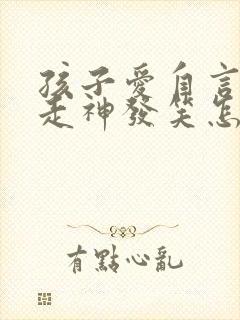 孩子愛自言
走神發笑怎
有點心亂